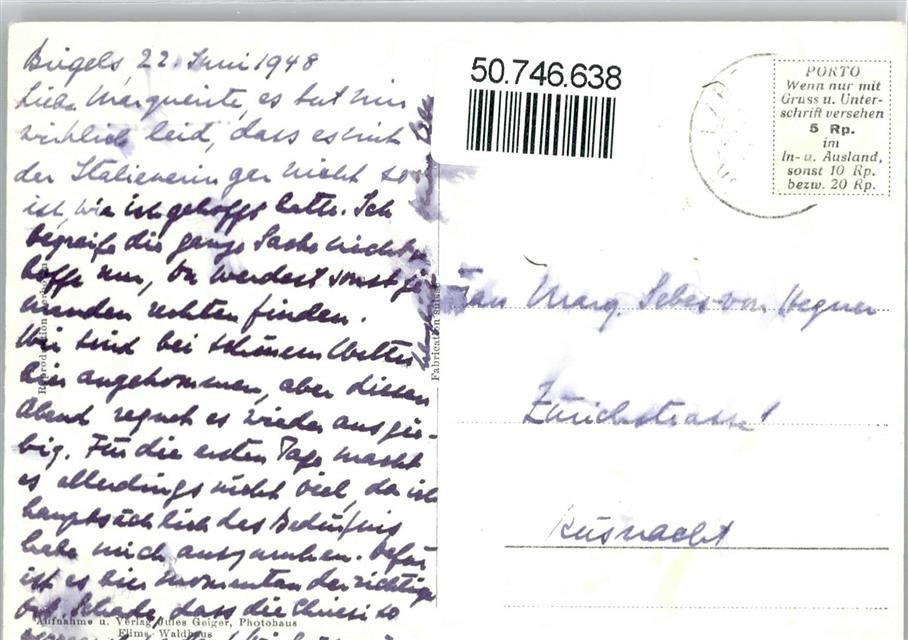 Brigels, 22. Juni 1948
Liebe Marguerite, es tut mir
wirklich leid, dass es mit
der Italienerin gar nicht so
ist, wie ich gehofft hatte. Ich
begreife die ganze Sache nicht u.
hoffe nur, Du werdest sonst je-
manden rechten finden.
Wir sind bei schönem Wetter
hier angekommen, aber diesen
Abend regnet es wieder ausgie-
big. Für die ersten Tage macht
es allerdings nicht viel, da ich
hauptsächlich das Bedürfnis
habe mich auszuruhen. Dafür
ist es hier momentan der richtige
Ort. Schade, dass die so
Aufnahme u. Verlag Jules Geiger, Photohaus
Flims-Waldhaus
Fabrication suisse
50.746.638
PORTO
Wenn nur mit
Gruss u. Unter-
schrift versehen
5 Rp.
im
In- u. Ausland,
sonst 10 Rp.
bezw. 20 Rp.
Frau Marg. von
Zürichstrasse
Küsnacht